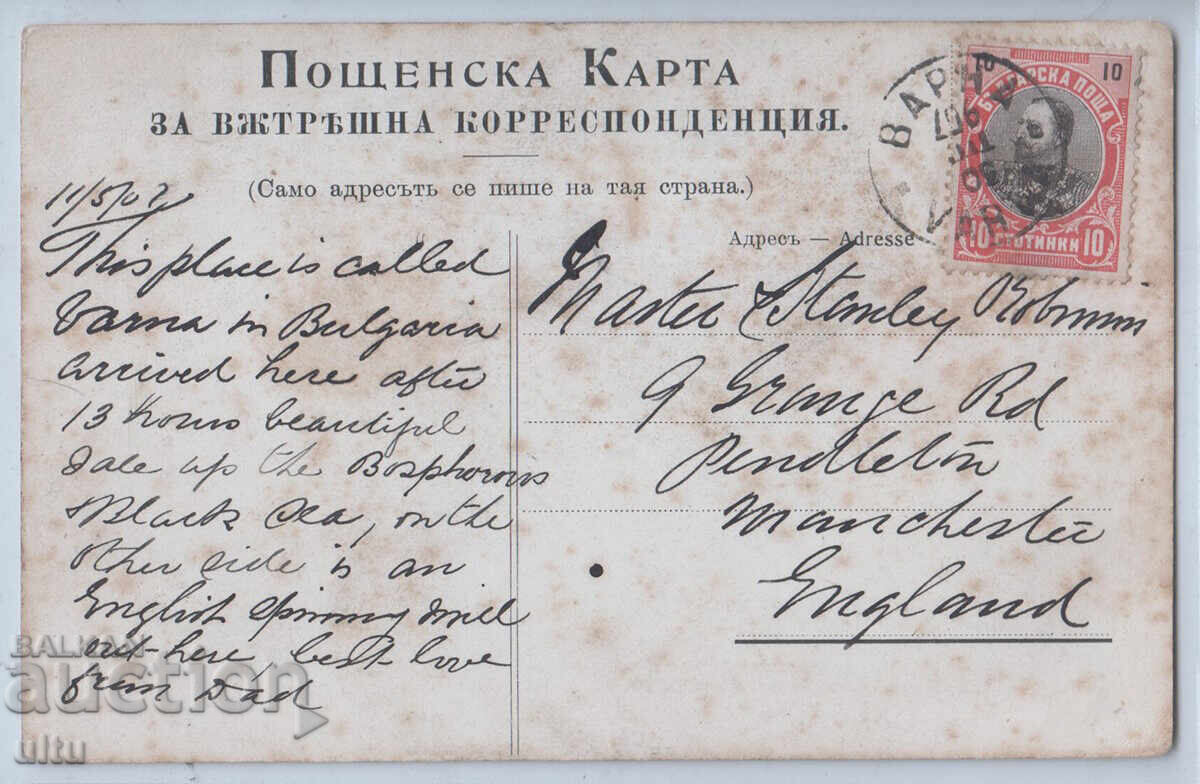 Пощенска Карта
за вѫтрѣшна корреспонденция.
(Само адресътъ се пише на тая страна.)
Адресъ — Adresse
11/5/07
This place is called
Varna in Bulgaria
arrived here after
13 hours beautiful
up the Bosphorous
& Black Sea, on the
other side is an
English spinning mill
out here best love
from Dad
Master Stanley Robinson
9 Grange Rd
Pendleton
Manchester
England
10
БЪЛГАРСКА ПОЩА
10 СТОТИНКИ 10
ВАРНА
VARNA
BALKAN
auction
ultu